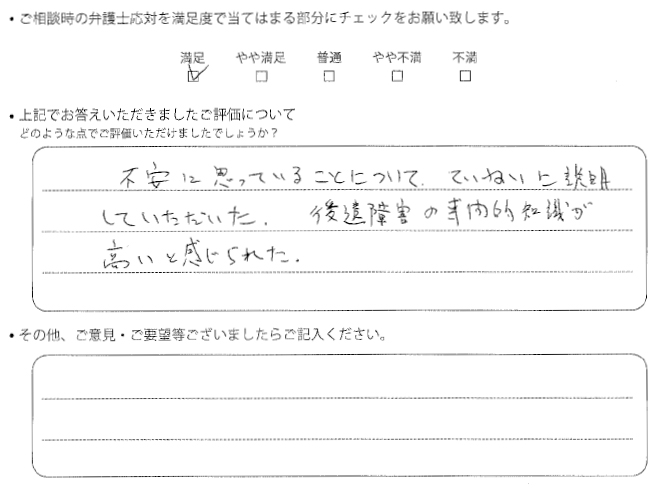 ・ご相談時の弁護士応対を満足度で当てはまる部分にチェックをお願い致します。
満足 やや満足 普通 やや不満 不満
・上記でお答えいただきましたご評価について
どのような点でご評価いただけましたでしょうか？
不安に思っていることについて、ていねいに説明
していただいた。 後遺障害の専門的知識が
高いと感じられた。
・その他、ご意見・ご要望等ございましたらご記入ください。